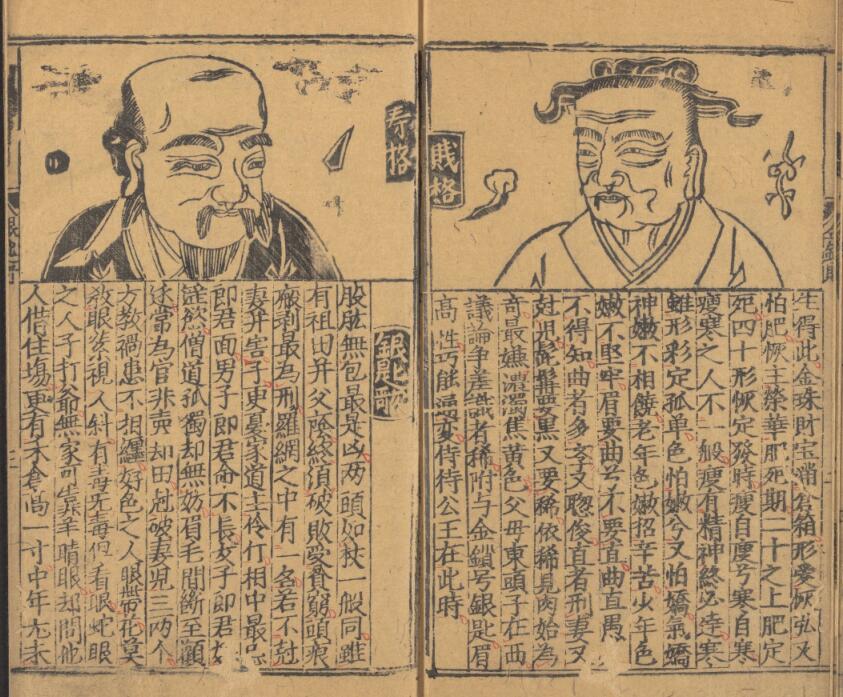 賎格
生得此金珠財宝滿倉箱形愛恢弘又
怕肥恢主榮華肥死期二十之上肥定
死四十形恢定發時瘦自瘦兮寒自寒
瘦寒之人不一般瘦有精神終必達寒
雖形彩定孤单色怕嫩兮又怕嬌氣嬌
神嫩不相饒老年色嫩招辛苦少年色
嫩不堅牢眉要曲兮不要直曲直愚
不得知曲者多孝又聦俊直者刑妻又
尅児髭髯要黒又要稀依稀見肉始為
奇最嫌濃濁焦黄色父母東頭子在西
議論争差識者稀附与金鎖号銀匙眉
高性巧能通変侍待公王在此時
寿格
銀匙歌
股肱無包最是凶两頭如杖一般同雖
有祖田并父廕終須破敗受貧窮頭痕
癍剥最為刑羅網之中有一名若不尅
妻并害子更憂家道主伶仃相中最忌
郎君面男子郎君命不長女子郎君好
婬慾僧道孤獨却無妨眉毛間断至顴
边常為官非賣却田尅破妻児三两个
方教禍患不相纏好色之人眼帯花莫
教眼紧視人斜有毒无毒但看眼蛇眼
之人子打爺無家可靠羊睛眼却問他
人借住場更有禾倉高一寸中年尤未